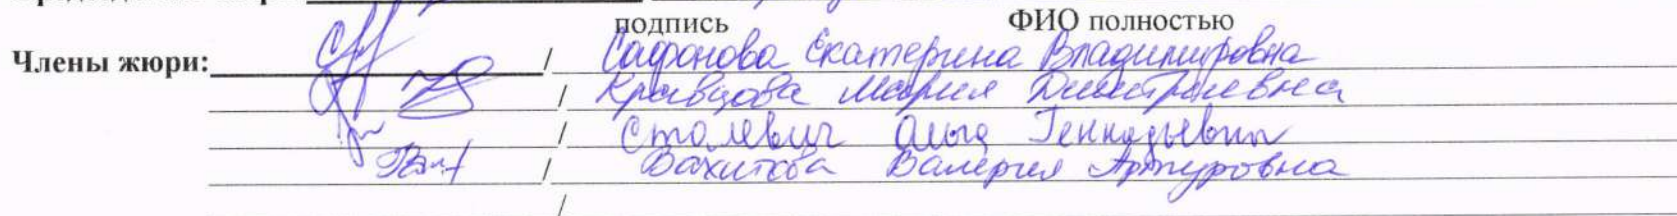 подпись ФИО полностью
Члены жюри: / Сафонова Екатерина Владимировна
/ Кравцова Мария Дмитриевна
/ Ольга Геннадьевна
/ Вахитова Валерия Артуровна
/